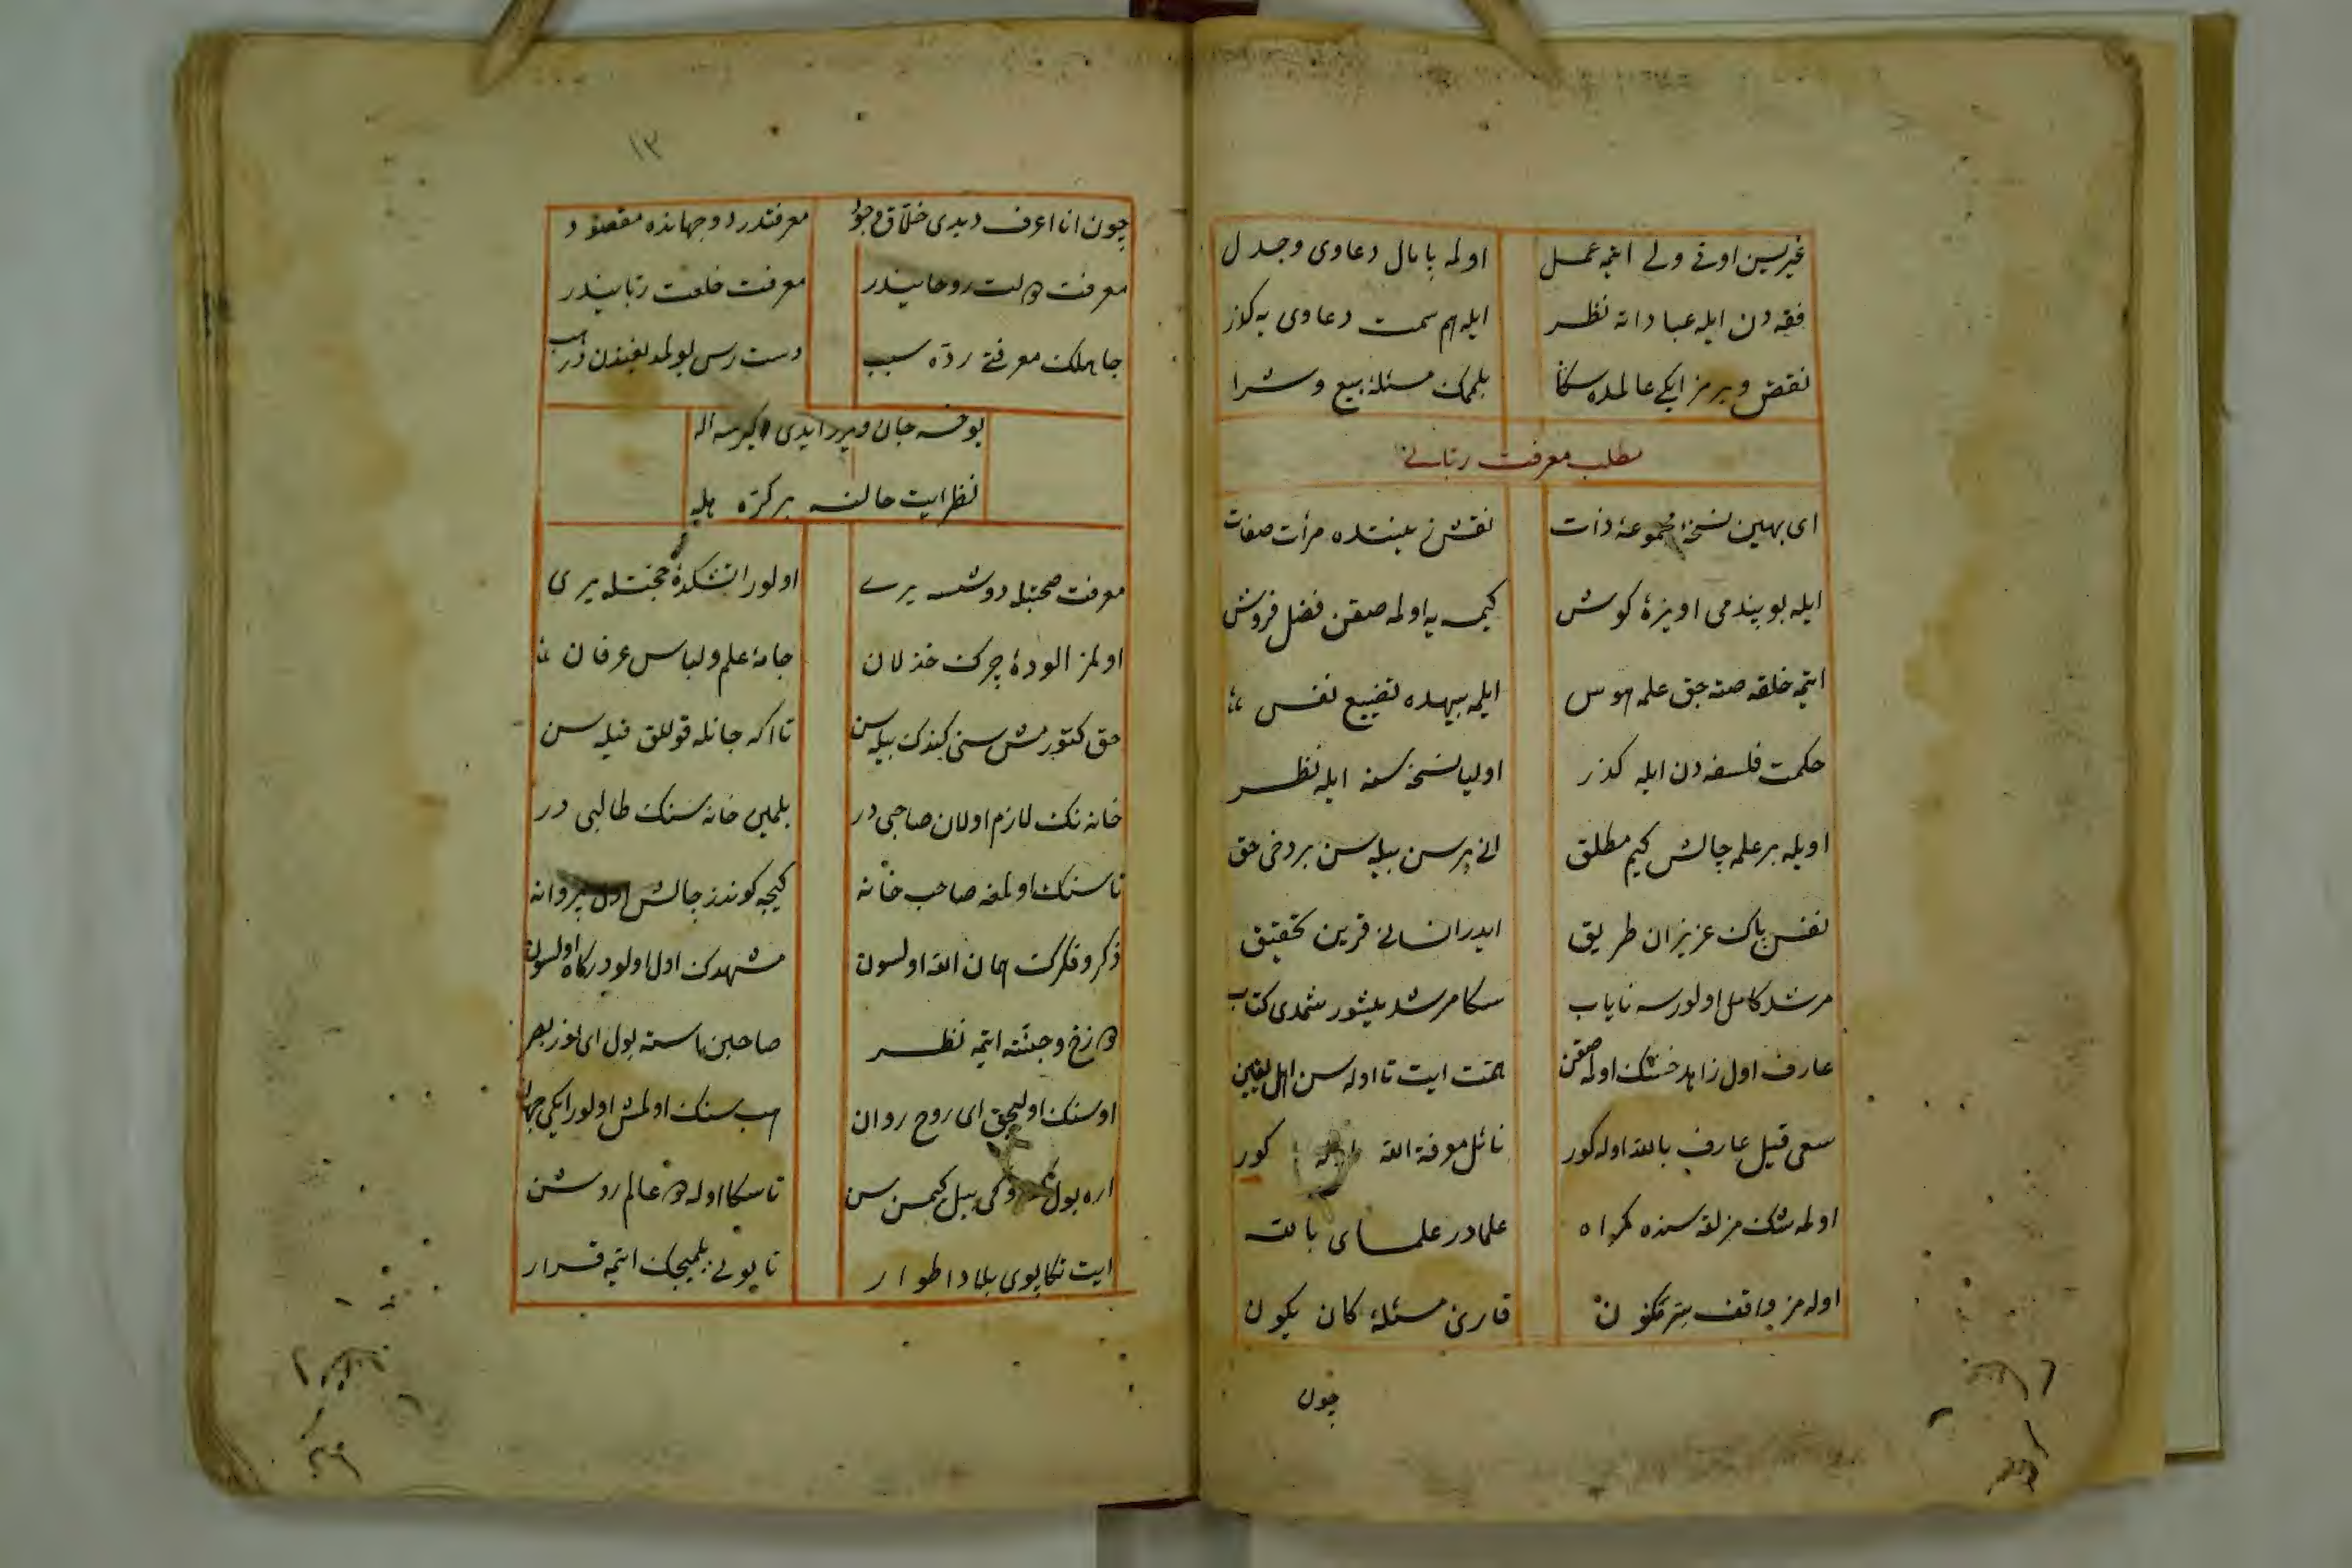 غیریسین اوقی ولی ایتمه عمل اولمه پامال دعاوی وجدل
فقه دن ایله عباداته نظر ایله هم سمت دعاوی یه کذر
نقض ویرمز ایکی عالمده سکا بلمک مسئلهٔ بیع وشرا
مطلب معرفت ربانی
ای بهین نسخهٔ مجموعهٔ ذات نقش زینتده مرأت صفات
ایله بو پندمی اویزهٔ کوش کیمسه یه اولمه صقن فضل فروش
ایتمه خلقه صته جق علمه هوس ایلمه بیهده تضییع نفس
حکمت فلسفه دن ایله کذر اولیا نسخه سنه ایله نظر
اویله بر علمه چالش کیم مطلق انی بر سن بیله سن بر دخی حق
نفس پاک عزیزان طریق ایدر انسانی قرین تحقیق
مرشد کامل اولورسه نایاب سکا مرشد یتیشور شمدی کتاب
عارف اول زاهد خشک اولمه صقن همت ایت تا اوله سن اهل یقین
سعی قیل عارف بالله اوله کور نائل معرفة الله کور
اولمه شک مزلقه سنده کمراه علمادر علمای بالله
اوله مز واقف سر مکنون قارئ مسئلهٔ کان یکون
چون
١٣
چون انا اعرف دیدی خلاق معرفتدر دو جهانده مقصود
معرفت دولت روحانیدر معرفت خلعت ربانیدر
جاهلک معرفتی ردّه سبب دست رس بولمدیغندندر هب
بوخسه جان ویرر ایدی اکرسه اله
نظر ایت حالنه بر کرّه هله
معرفت صحبتله دوشسه یری اولور اتشکدهٔ محنتله یری
اولمز الودهٔ چرک خذلان جامهٔ علم ولباس عرفان
حق کتورمش سنی کندک بیله سن تا اکه جانله قوللق قیله سن
خانه نک لازم اولان صاحبی در بلمین خانه سنک طالبی در
تا سنک اولمغه صاحب خانه کیجه کوندز چالش اول پروانه
ذکر وفکرک همان الله اولسون مشهدک اول اولو درکاه اولسون
دوزخ وجنته ایتمه نظر صاحبن استه بول ای نور بصر
او سنک اولیجق ای روح روان هب سنک اولمش اولور ایکی جهان
اره بول بیل کیمسن سن تا سکا اوله دو عالم روشن
ایت تکاپوی بلاد اطوار تا بونی بلمیجک ایتمه قرار